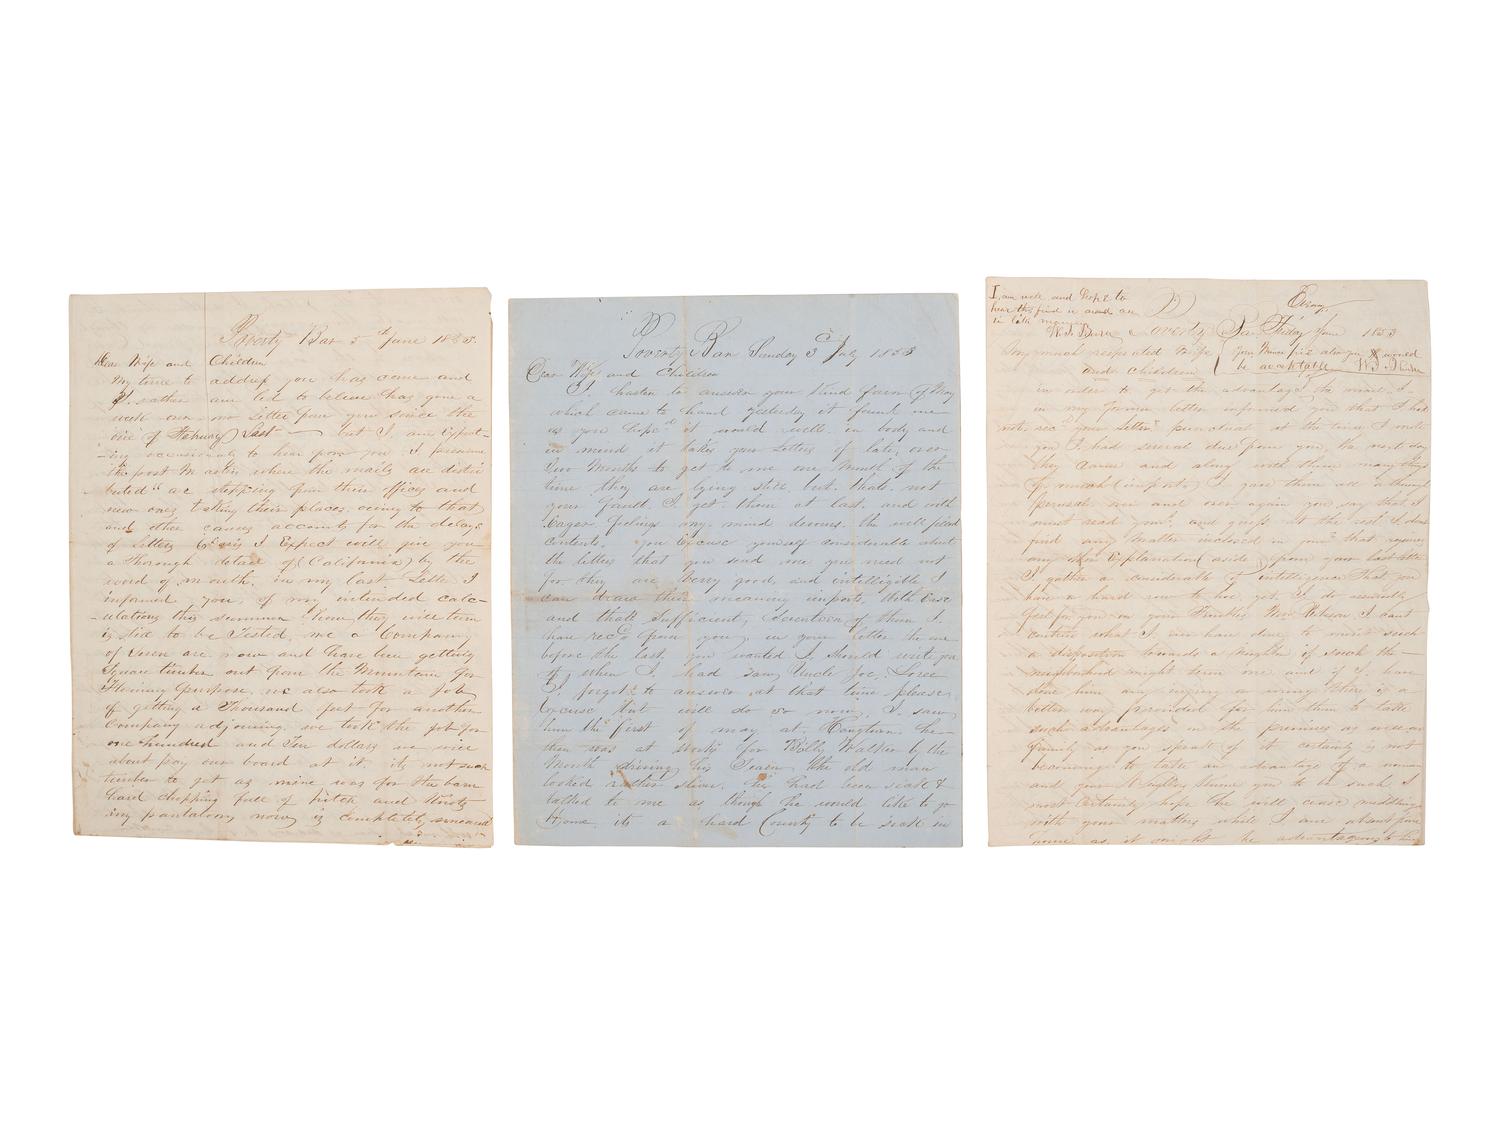 Poverty Bar 5th June 1853.
Dear Wife and Children
My time to address you has come and
I rather am led to believe has gone a
week over no Letter from you since the
of February Last — but I am Expect-
-ing occasionly to hear from you I presume
the post Masters where the mails are distri
buted are stepping from their offices and
new ones taking their places. owing to that
and other causes accounts for the delays
of letters I Expect will give you
a thorough detail of (California) by the
word of mouth. in my last Letter I
informed you, of my intended calc-
-ulations this summer how they will turn
is still to be Tested, me a Company
of Seven are now and have been getting
Square timber out from the Mountain for
Fluming purpose, we also took a job
of getting a Thousand feet for another
Company adjoining. we took the job for
one hundred and Ten dollars we were
about pay our board at it. its not such
timber to get as mine was for the barn
hard chopping full of pitch and Knots
my pantaloons now is completely smeared
Poverty Bar Sunday 3d July 1853
Dear Wife and Children
I. hasten to answer your kind favor of May
which came to hand yesterday it found me
as you hope'd it would well. in body and
in mind it takes your Letters of late, over
Two Months to get to me one Month of the
time they are lying still. but. thats. not
your fault. I get. them at last. and with
Eager feelings my. mind devours. the well filled
contents. you Excuse yourself considerable about
the letters that you send me you need not
for they are Verry good, and intelligible I
can draw their meaning imports, With Ease
and thats Sufficient, Seventeen of them I.
have recd from you, in your letter the one
before the last, you wanted I. Should write you
of when I had saw Uncle Joe. Loree
I forgot to answer at that time please
Excuse but will do so now, I. saw
him the first of may at. He
then was at work for Billy Walker by the
Month driving his Team. the old man
looked rather slim. he had been sick &
talked to me as though he would like to go
Home. its a hard County to be sick in
I, am well and hope to
hear this find is and on
in like
W. J. Burn
Poverty Bar Friday June 1853
My much respected Wife
and children
be acceptable W. J. Burn
in order to get the advantage the most I.
in my former letter informed you that I had
not, rec'd your Letters punctual at the time I wrote
you I. had several due from you, the next day
they came and along with them many things
of much (import) I gave them all a through
perusal over and over again you say that I
must read and guess at the rest I. dont
find any matter inclosed in yours that requires
any Explanation (aside) from your last letter
I gather a considerable of intelligence That you
have a hard row to hoe yet. I do sensibly
feel for you in your Troubles Mrs I cant
contrive what I. ever have done to merit such
a disposition towards a Neighbor if such the —
neighborhood might term one and if I. have
done him any injury or wrong there is a
better way provided for him then to take
such advantages in the premises as well as
family as you speak of it certainly is not
becoming to take an advantage of a woman
and your to be such I
most certainly hope he will cease meddling
with your matters while I am absent from
home as it might be advantageous to him